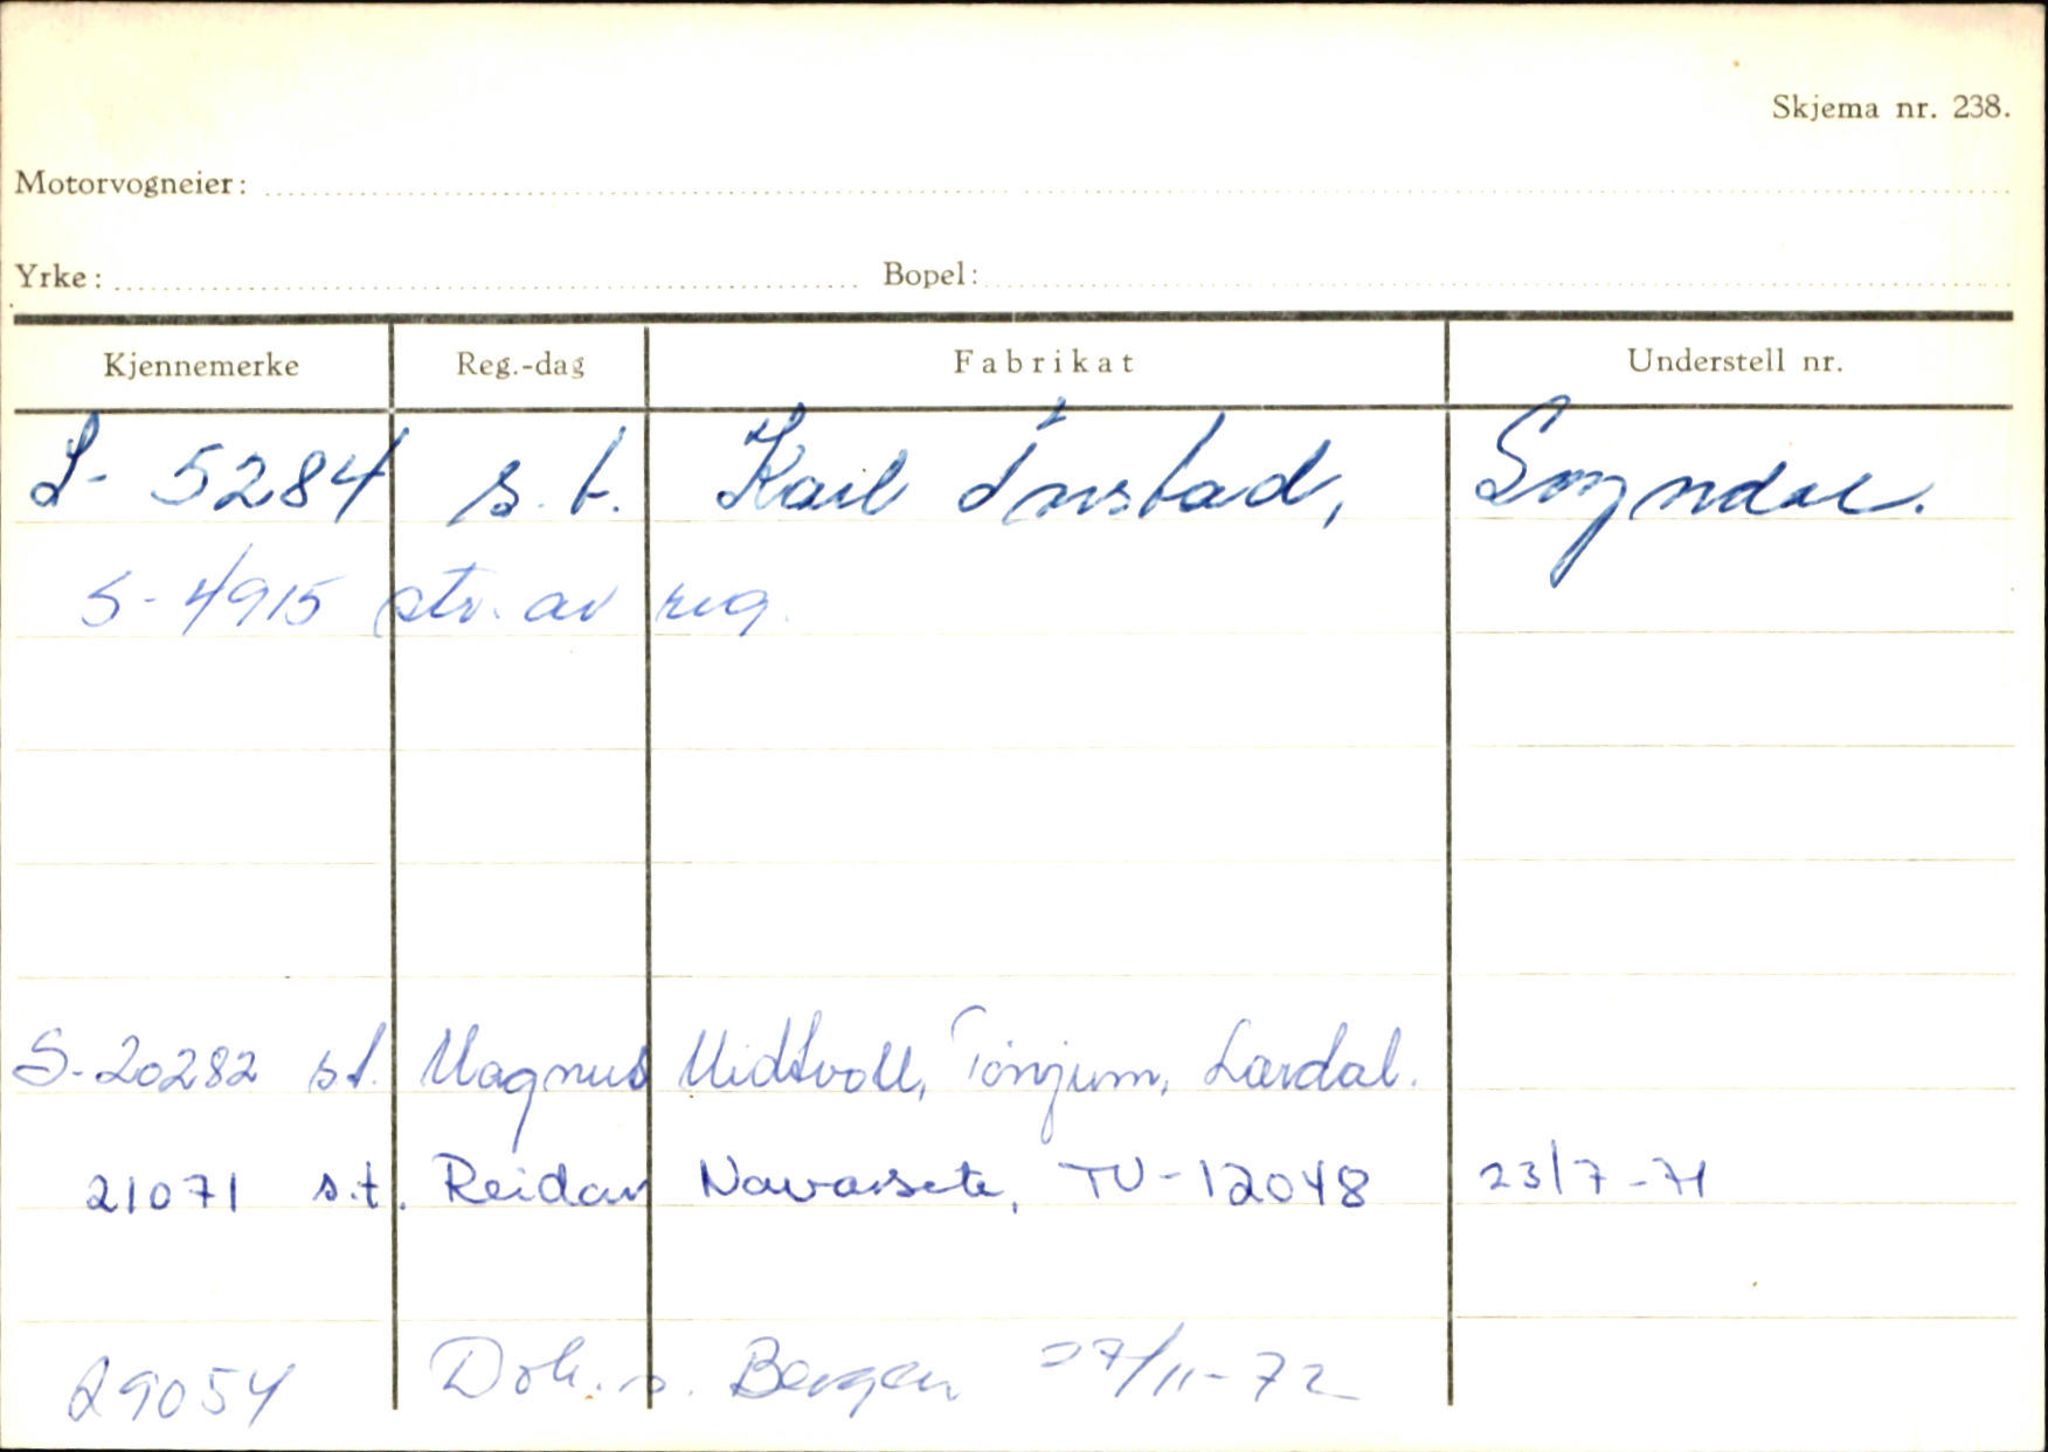 Skjema nr. 238.
Motorvogneier:
Yrke: Bopel:
Kjennemerke Reg.-dag Fabrikat Understell nr.
S- 5284 s.t. Karl Ånstad, Sogndal.
S-4915 str. av reg.
S-20282 s.t. Magnus Midtvoll, Tönjum, Lærdal.
21071 s.t. Reidar Navarsete, TV-12048 23/7-71
29054 Dok. s. Bergen 27/11-72